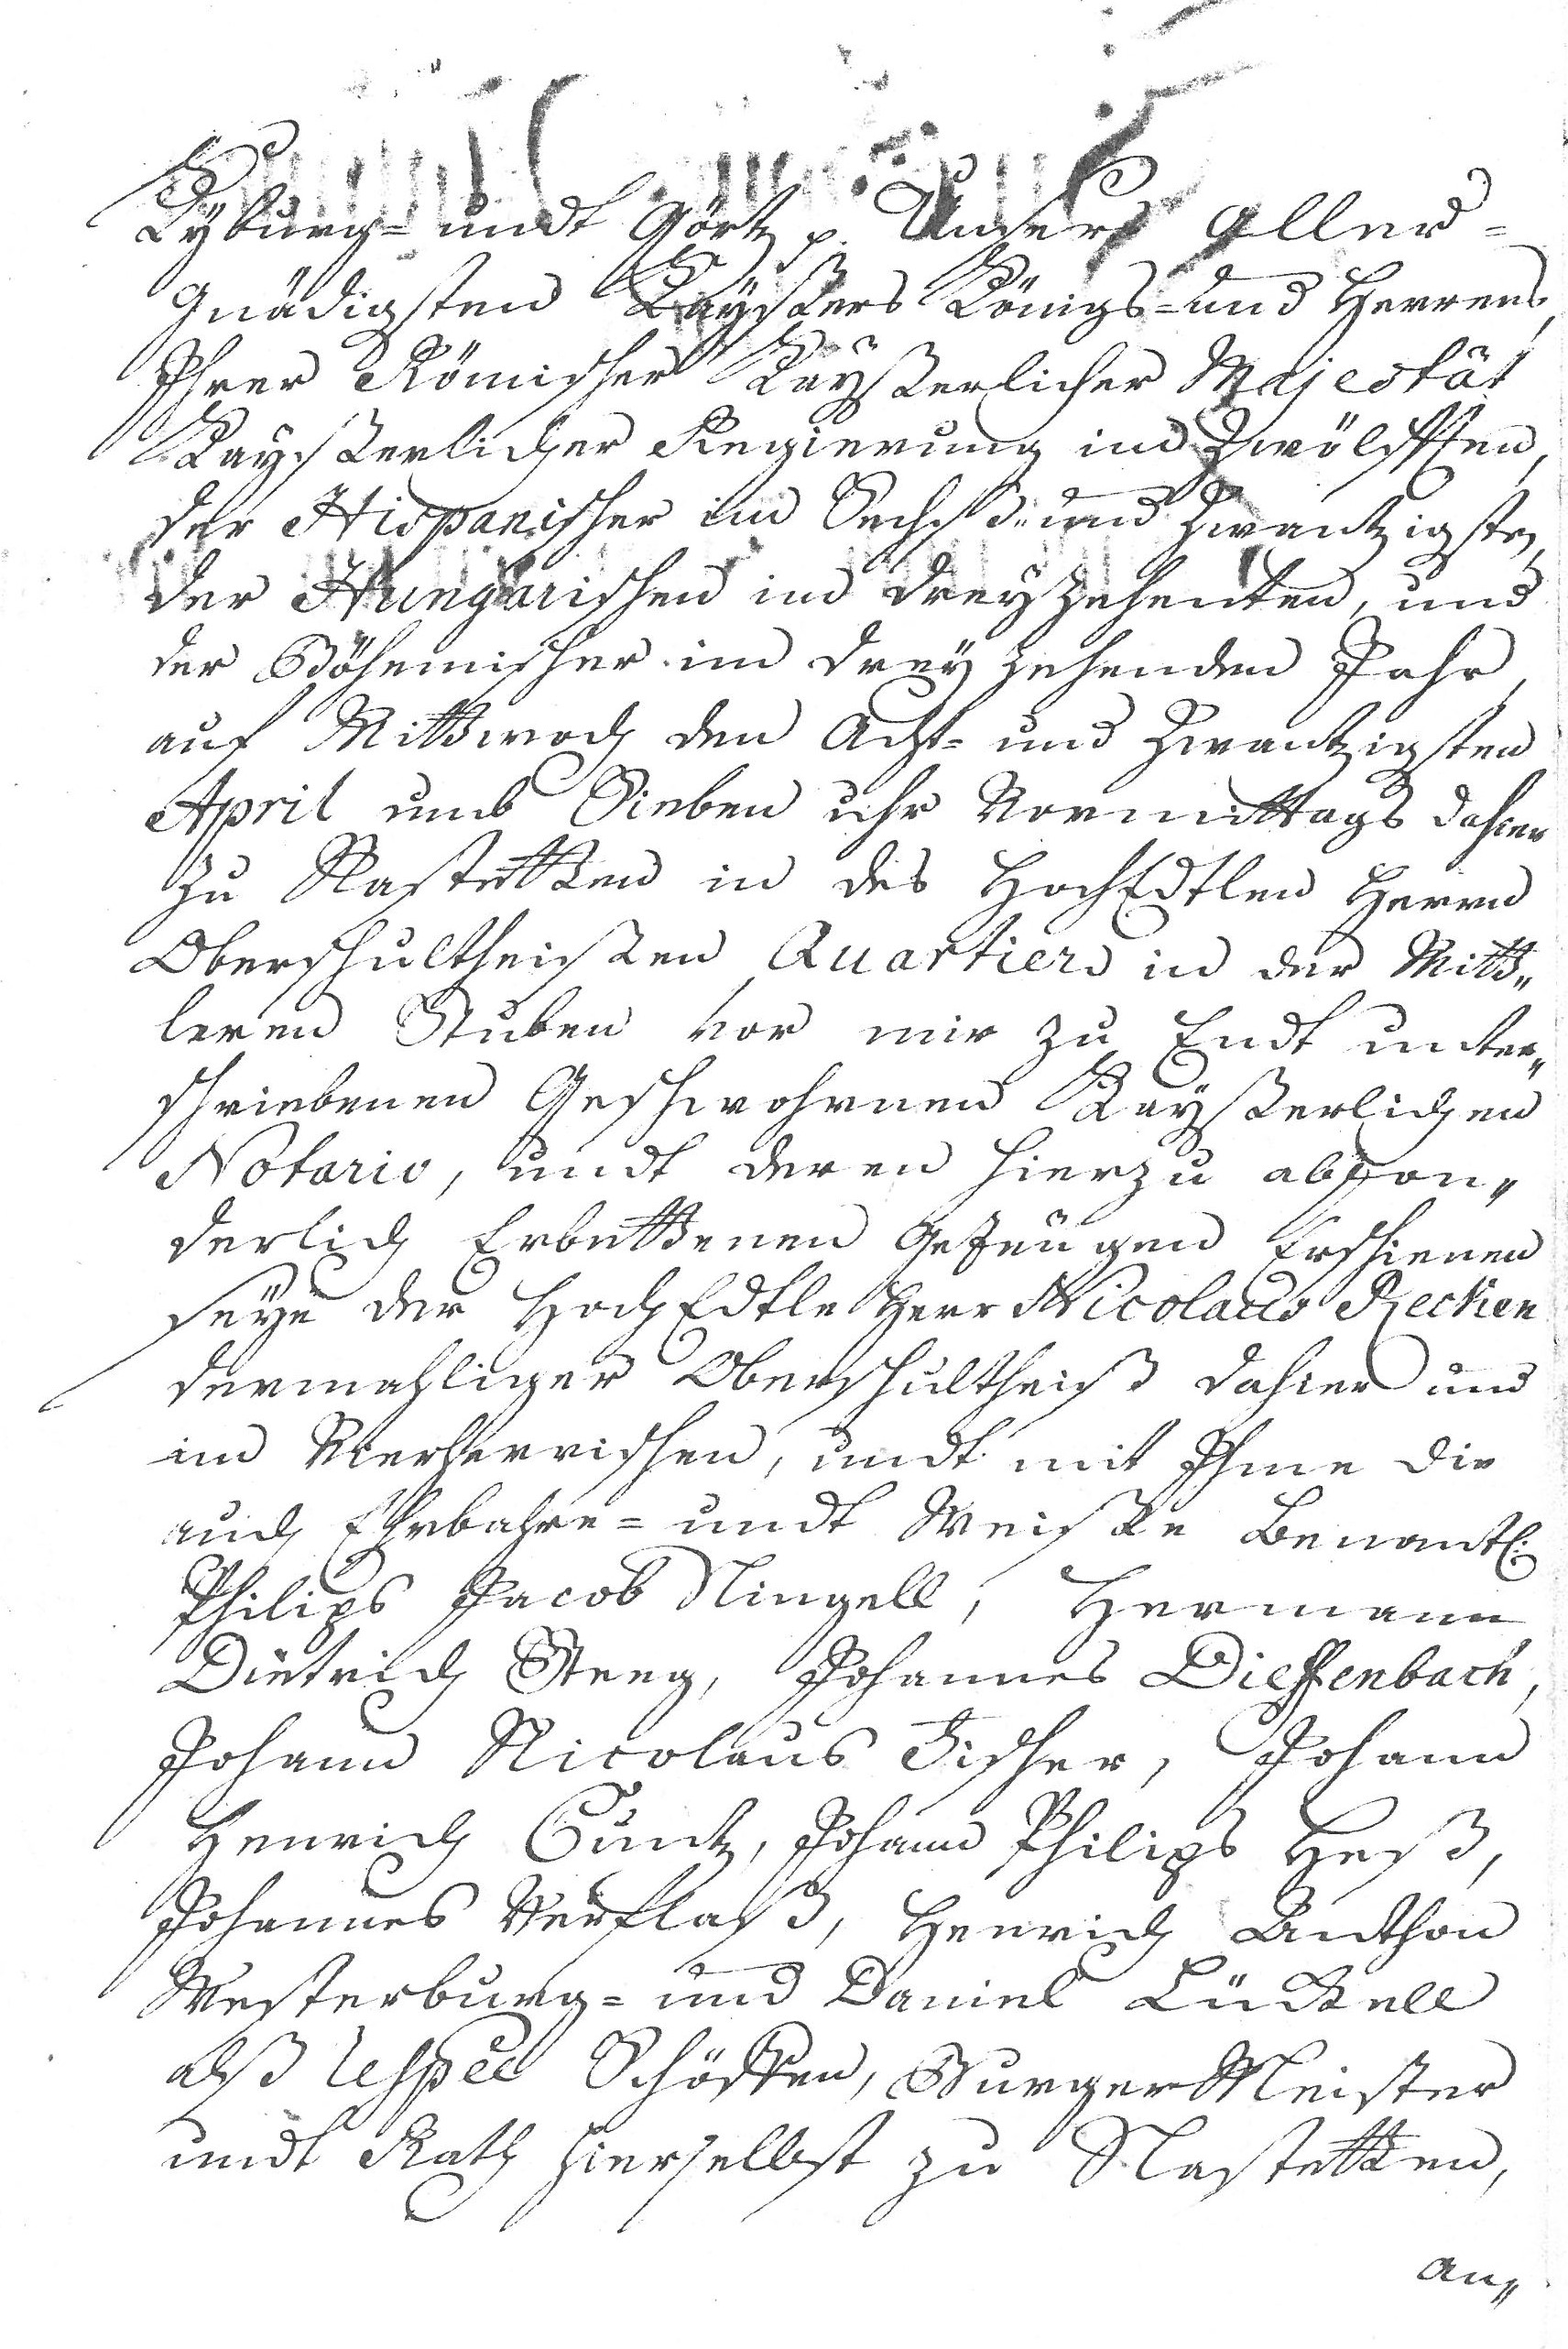 Kyburg= undt Görtz p. Unsers aller=
gnädigsten Kayßers Königs= und Herrens,
Ihrer Römischer Kayßerlicher Majestät
Kayßerlicher Regierung im Zwölfften,
der Hispanischer im Sechs= und Zwantzigsten,
der Hungarischen im dreyzehenten, und
der Böhemischer im dreyzehenden Jahr,
auf Mittwoch den Acht= und Zwantzigsten
April umb Sieben uhr Vormittags dahier
zu Nastetten in des HochEdtlen Herrn
Oberschultheißen Quartier in der Mitt„
leren Stuben vor mir zu Endt unter„
schriebenen Geschwohrnen Kayßerlichen
Notario, undt deren hierzu abson„
derlich Erbettenen Gezeügen Erschienen
seye der HochEdtle Herr Nicolaus Recken
dermahliger Oberschultheiß dahier und
im Vierherrischen, undt mit Ihme die
auch Ehrbahre= undt Weiße Benantl:
Philips Jacob Ningell, Hermann
Dietrich Steeg, Johannes Dieffenbach,
Johann Nicolaus Fischer, Johann
Henrich Cuntz, Johann Philips Heß,
Johannes Verflaß, Henrich Anthon
Westerburg= und Daniel Lückell
alß respee Schöffen, BurgerMeister
undt Rath hierselbst zu Nastetten,
an„